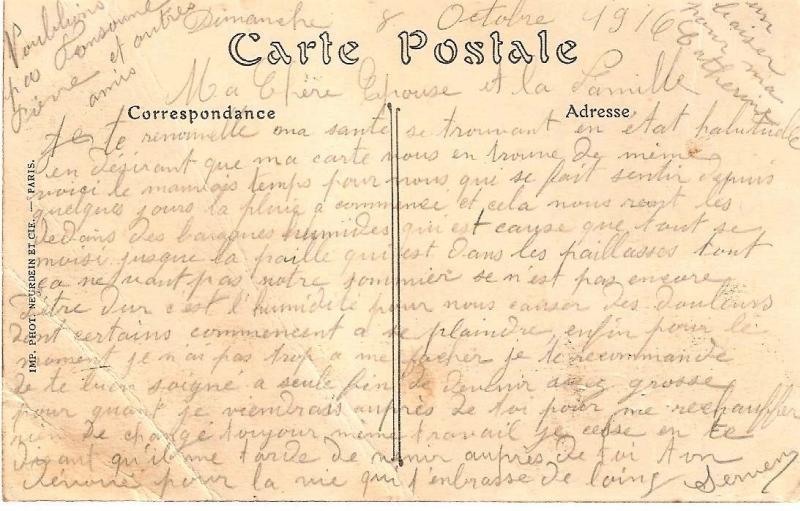 Dimanche 8 Octobre 1916
Carte Postale
Ma Chère Epouse et la Famille
Correspondance
Adresse
Je te renouvelle ma santé se trouvant en état
en désirant que ma carte vous en trouve de même
voici le mauvais temps pour nous qui se fait sentir depuis
quelques jours la pluie a commence et cela nous rent les
dedans des baraques humides qui est cause que tout se
moisi jusque la paille qui est dans les paillasses tout
ça ne vaut pas notre sommier se n'est pas encore
d'être dur c'est l'humidité pour nous causer des douleurs
dont certains commencent a se plaindre enfin pour le
moment je n'ai pas trop a me facher je te recommande
de te bien soigné a seule fin de devenir grosse
pour quant je viendrais auprès de toi pour me rechauffer
rien de changé toujour meme travail je cesse en te
disant qu'il me tarde de venir auprès de toi ton
pour la vie qui t'enbrasse de loing
un baiser
pour ma
Catherine
Pierre et autres
amis
IMP. PHOT. NEURDEIN ET CIE. — PARIS.